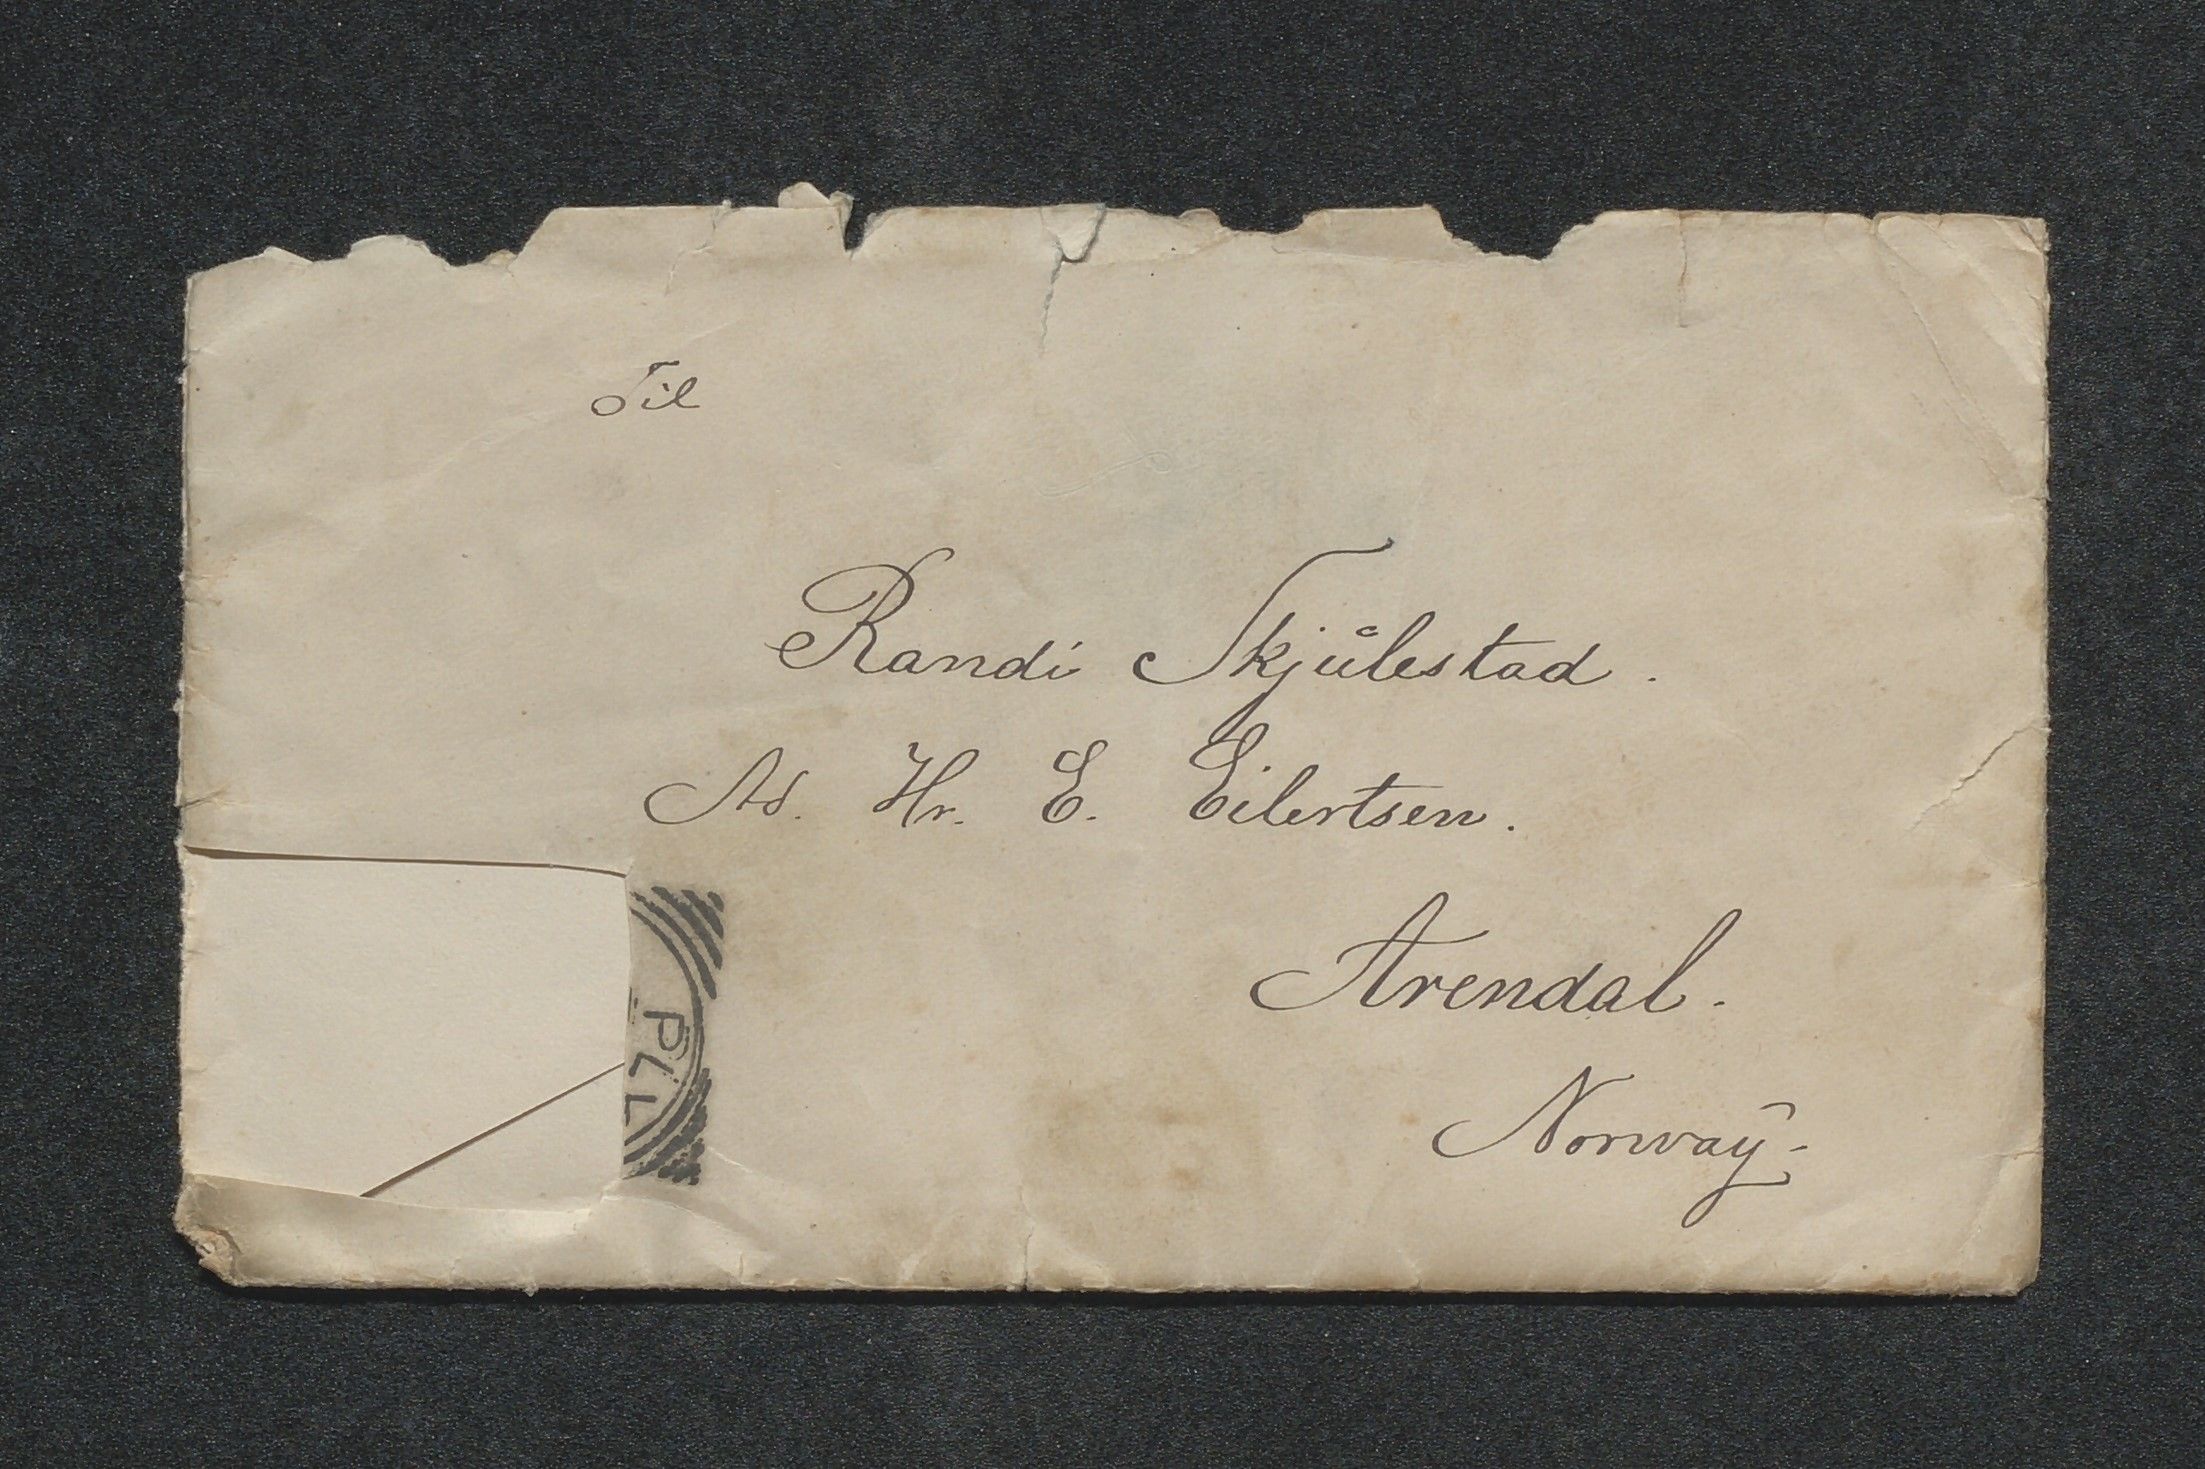 Til
Randi Skjulestad.
Ad. Hr. E. Eilertsen.
Arendal.
Norway.
PLL